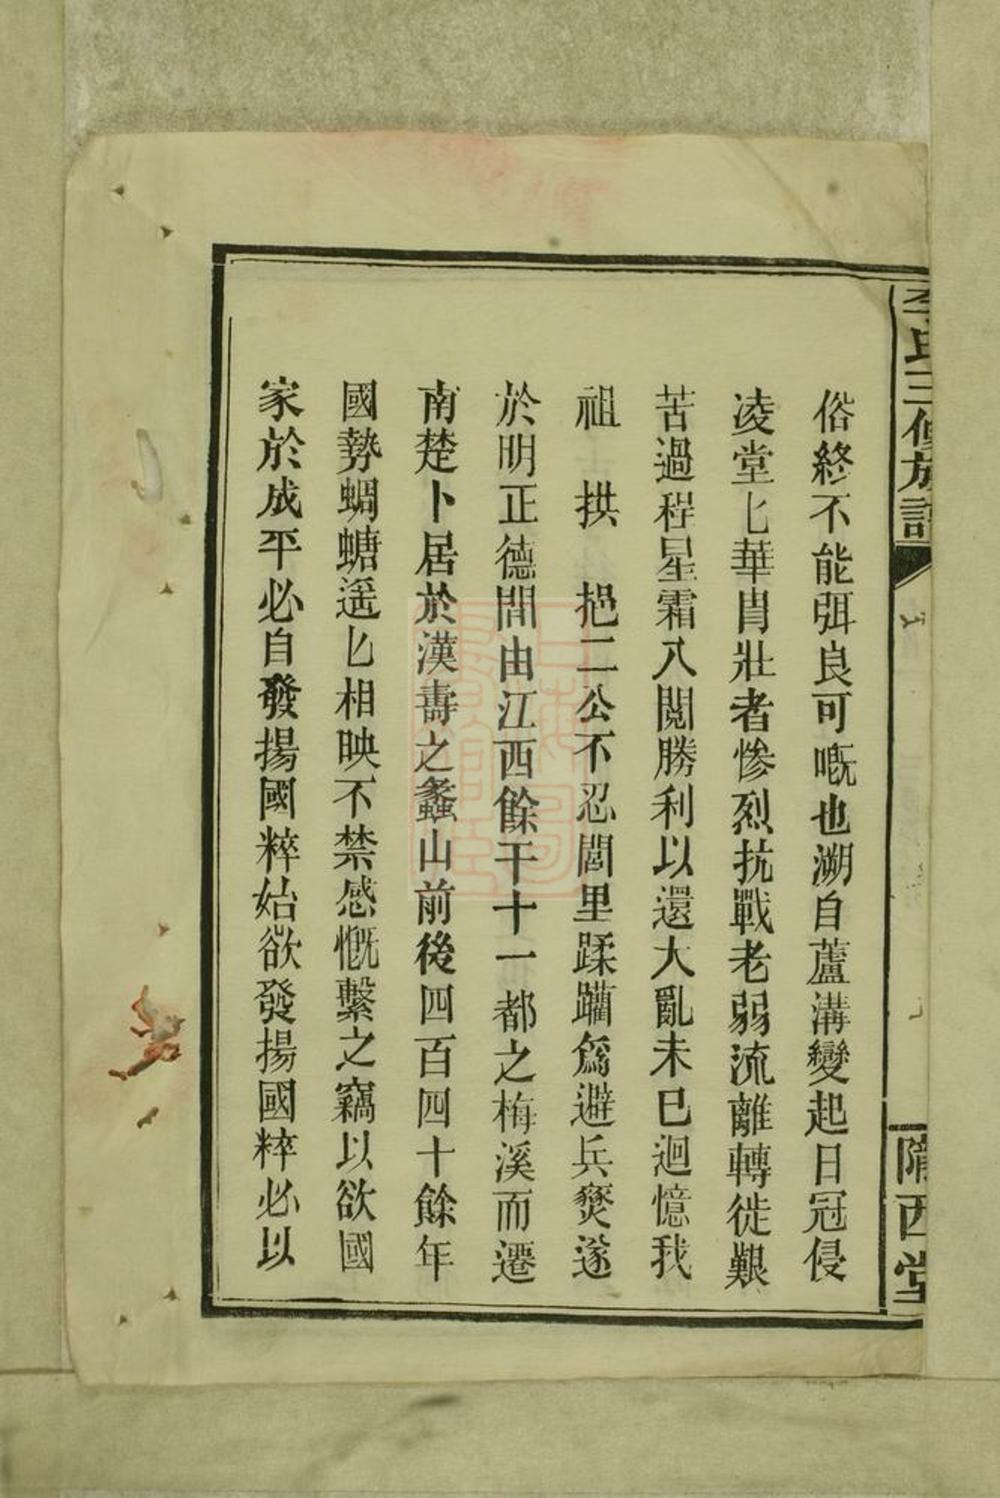 李氏三修族譜
隴西堂
俗終不能弭良可嘅也溯自蘆溝變起日冠侵
凌堂匕華胄壯者慘烈抗戰老弱流離轉徙艱
苦過程星霜八閱勝利以還大亂未已迴憶我
祖　拱　挹二公不忍閭里蹂躪爲避兵燹遂
於明正德間由江西餘干十一都之梅溪而遷
南楚卜居於漢壽之蠡山前後四百四十餘年
國勢蜩螗遥匕相映不禁感慨繫之竊以欲國
家於成平必自發揚國粹始欲發揚國粹必以